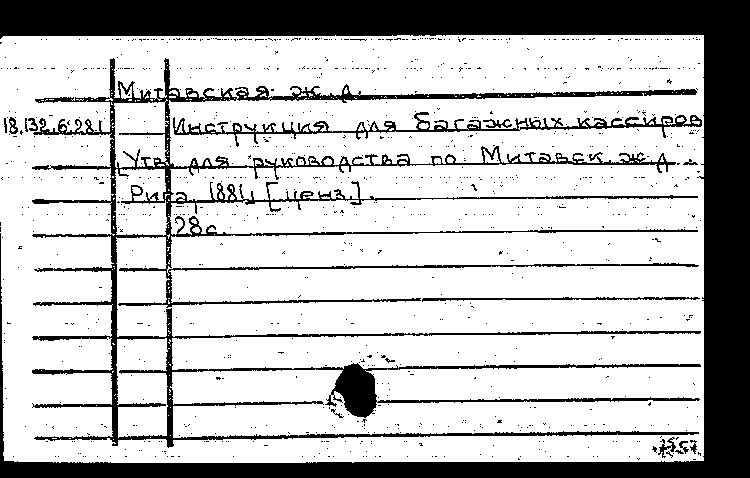 Митавская ж. д.
18.132.6.281 Инструкция для багажных кассиров
[Утв. для руководства по Митавск. ж. д.
Рига, 1881] [ценз.].
28с.